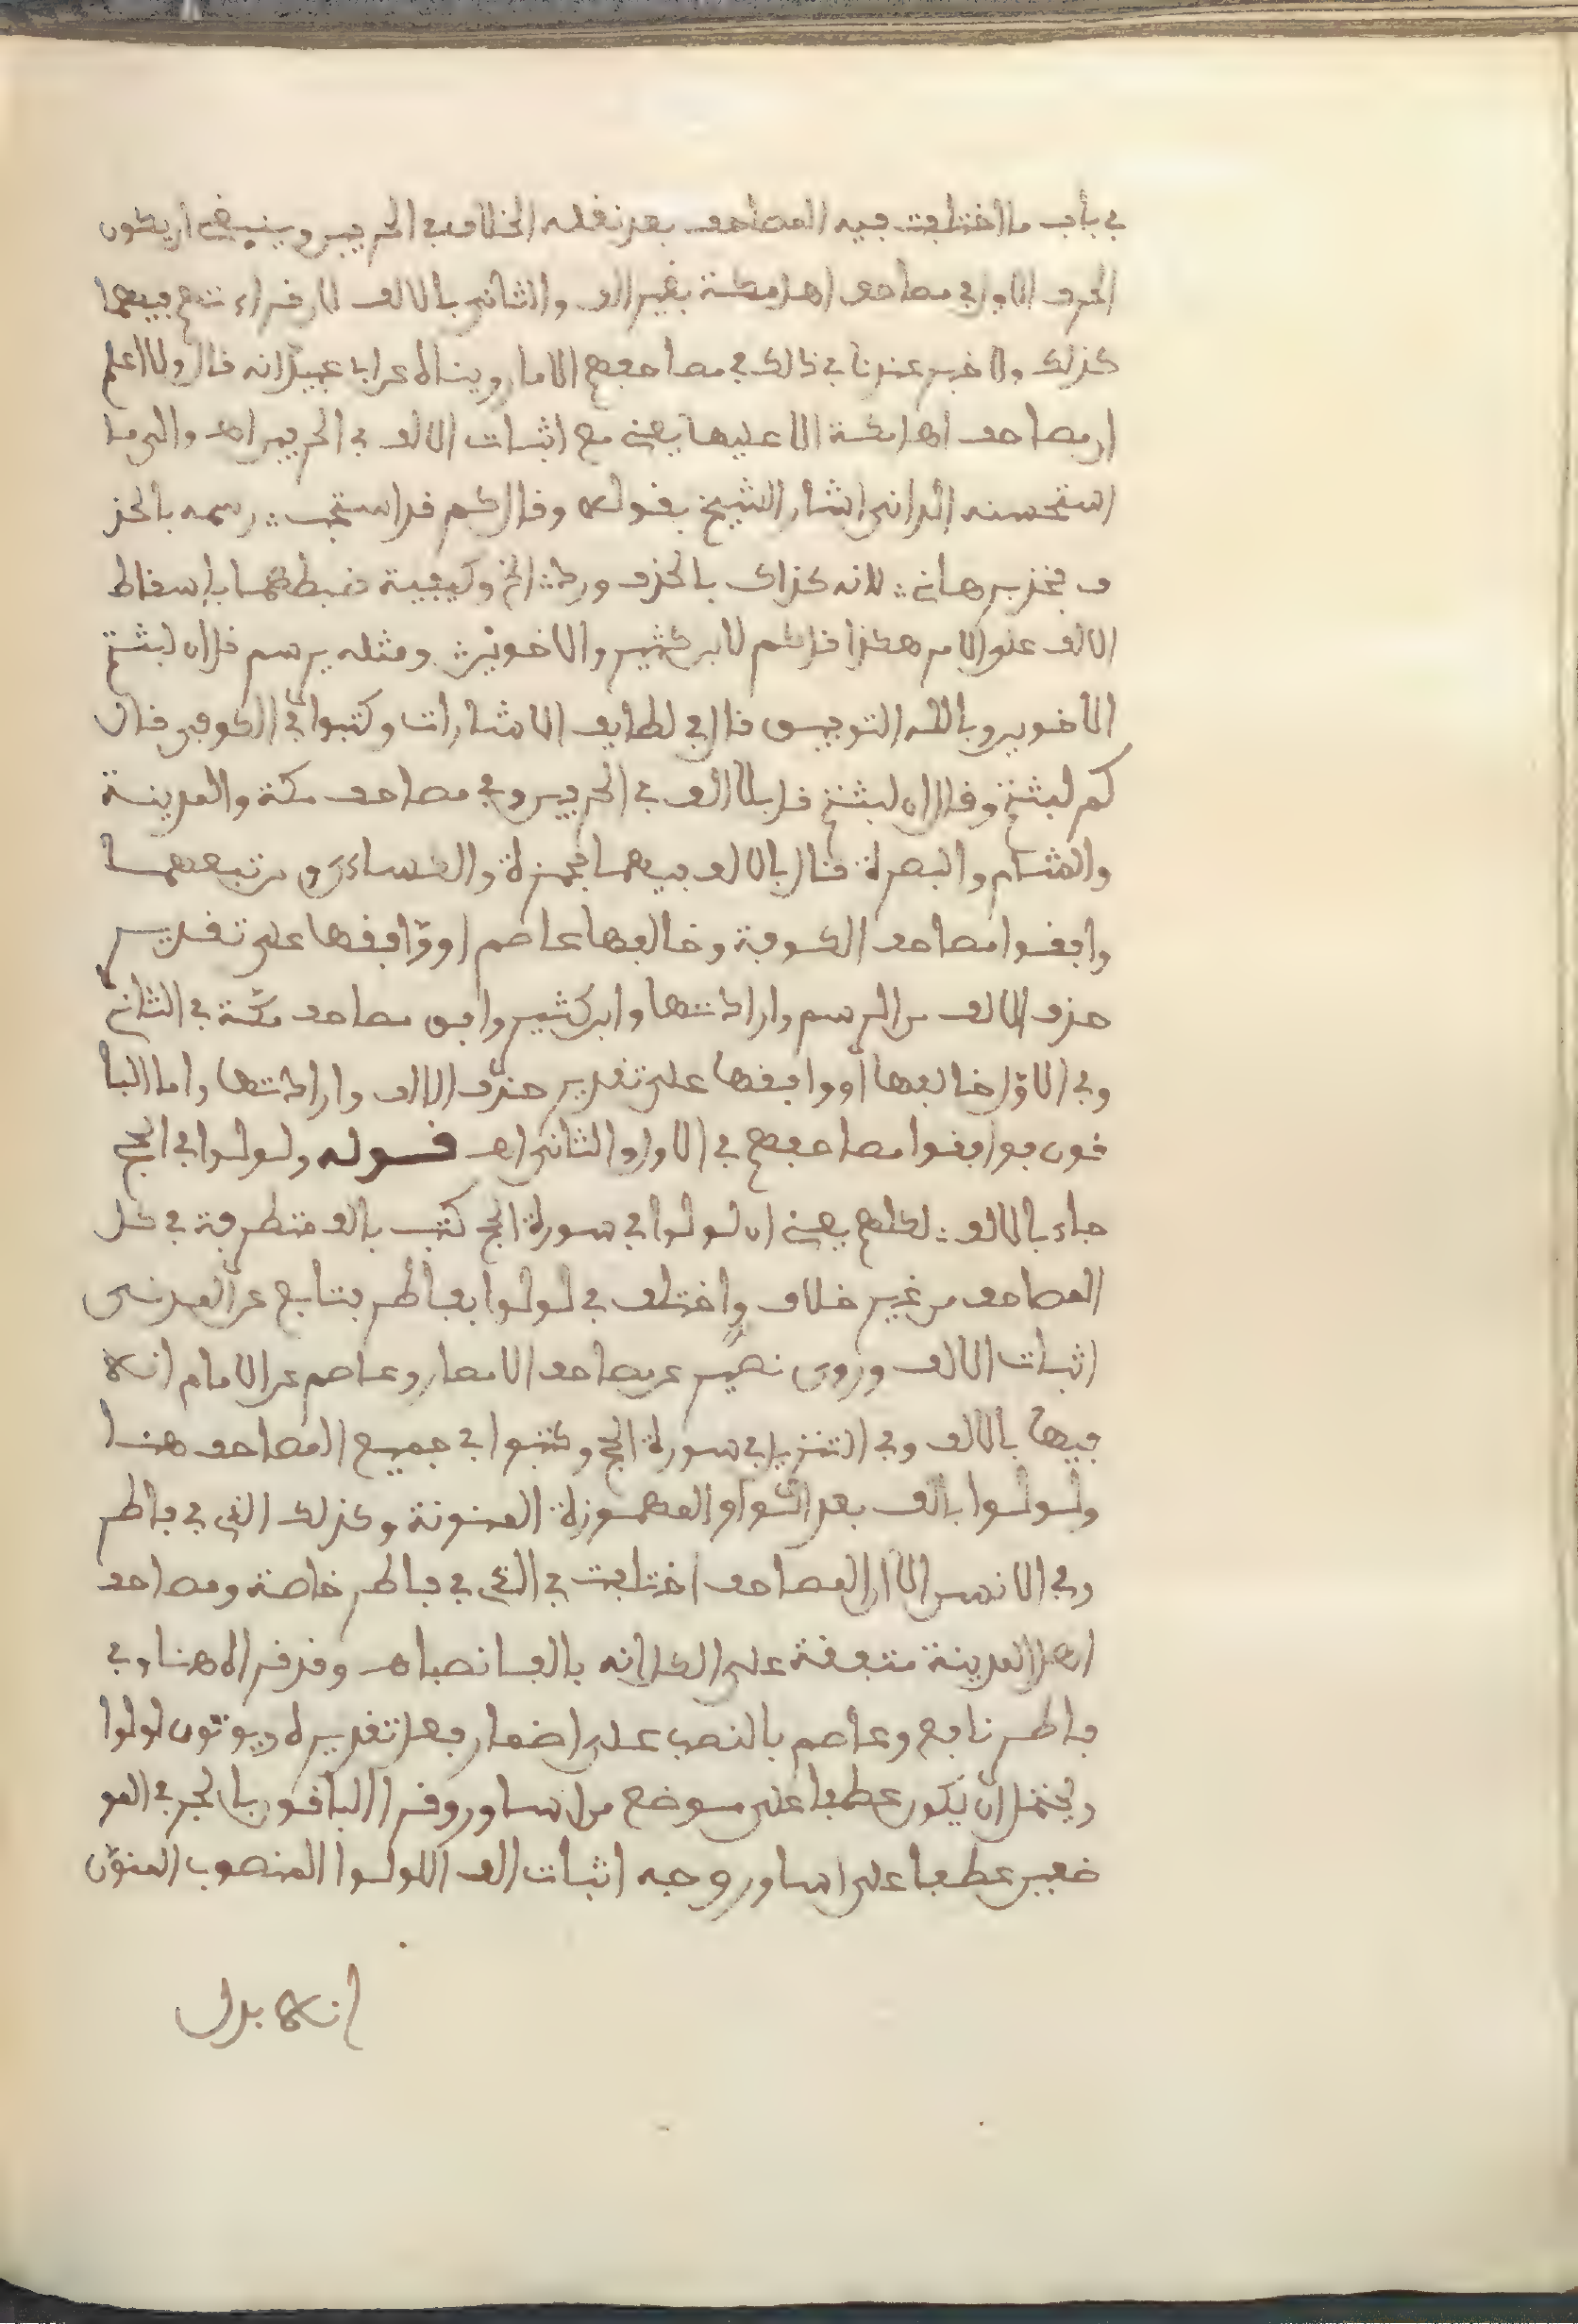 في باب ما اختلفت فيه المصاحف بعد نقله الخلاف في الحرفين وينبغي ان يكون
الحرف الاول في مصاحف اهل مكة بغير الف والثاني بالالف لان قراءتهم فيهما
كذلك ولا خبر عندنا في ذلك في مصاحفهم الا ما رويناه عن ابي عبيد انه قال ولا اعلم
ان مصاحف اهل مكة الا عليها يعني مع اثبات الالف في الحرفين اهـ والى ما
استحسنه الداني اشار الشيخ بقوله وقال كم قد استحب ∴ رسمه بالحذ
ف فخذ برهاني ∴ لانه كذاك بالحذف ورد ∴ الخ وكيفية ضبطهما باسقاط
الالف على الامر هكذا قل كم لابن كثير والاخوين ∴ ومثله يرسم قل ان لبثتم
الاخوين وبالله التوفيق قال في لطايف الاشارات وكتبوا في الكوفي قال
كم لبثتم وقال ان لبثتم قل بلا الف في الحرفين وفي مصاحف مكة والمدينة
والشام والبصرة قال بالالف فيهما فحمزة والكساءي ومن تبعهما
وافقوا مصاحف الكوفة وخالفها عاصم او وافقها على تقدير
حذف الالف من الرسم وارادتها وابن كثير وافق مصاحف مكة في الثاني
وفي الاول خالفها او وافقها على تقدير حذف الالف وارادتها واما البا
قون فوافقوا مصاحفهم في الاول والثاني اهـ قوله ولولوا في الحج
جاء بالالف ∴ لكلهم يعني ان لولوا في سورة الحج كتب بالف متطرفة في كل
المصاحف من غير خلاف واختلف في لولوا بفاطر فنافع عن المدني
اثبات الالف وروى نصير عن مصاحف الامصار وعاصم عن الامام انه
فيها بالالف وفي التنزيل في سورة الحج وكتبوا في جميع المصاحف هنا
ولولوا بالف بعد الواو المهموزة المنونة وكذلك التي في فاطر
وفي الانسن الا ان المصاحف اختلفت في التي في فاطر خاصة ومصاحف
اهل المدينة متفقة على الكل انه بالف انصبا اهـ وقد قرا هنا وفي
فاطر نافع وعاصم بالنصب على اضمار فعل تقديره ويوتون لولوا
ويحتمل ان يكون عطفا على موضع من اساور وقرا الباقون بالجر في المو
ضعين عطفا على اساور ووجه اثبات الف اللولوا المنصوب المنون
انه بدل